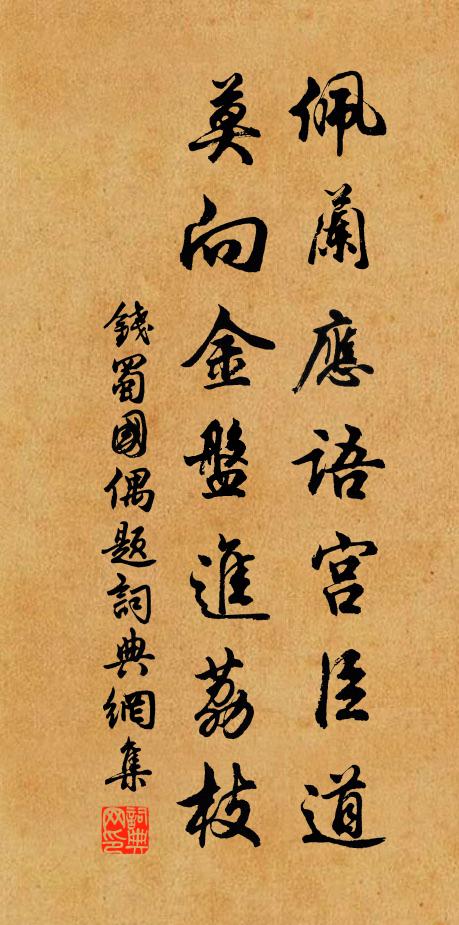 佩蘭應語宫臣道
莫向金盤進荔枝
錢蜀國偶題詞典網集
詞典网印